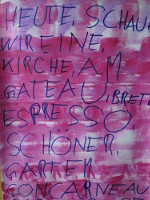 HEUTE, SCHAU
WIR EINE,
KIRCHE, AM
GATEAU, BRET
ESPRESSO
SCHÖNER,
GARTEN
CONCARNEAU